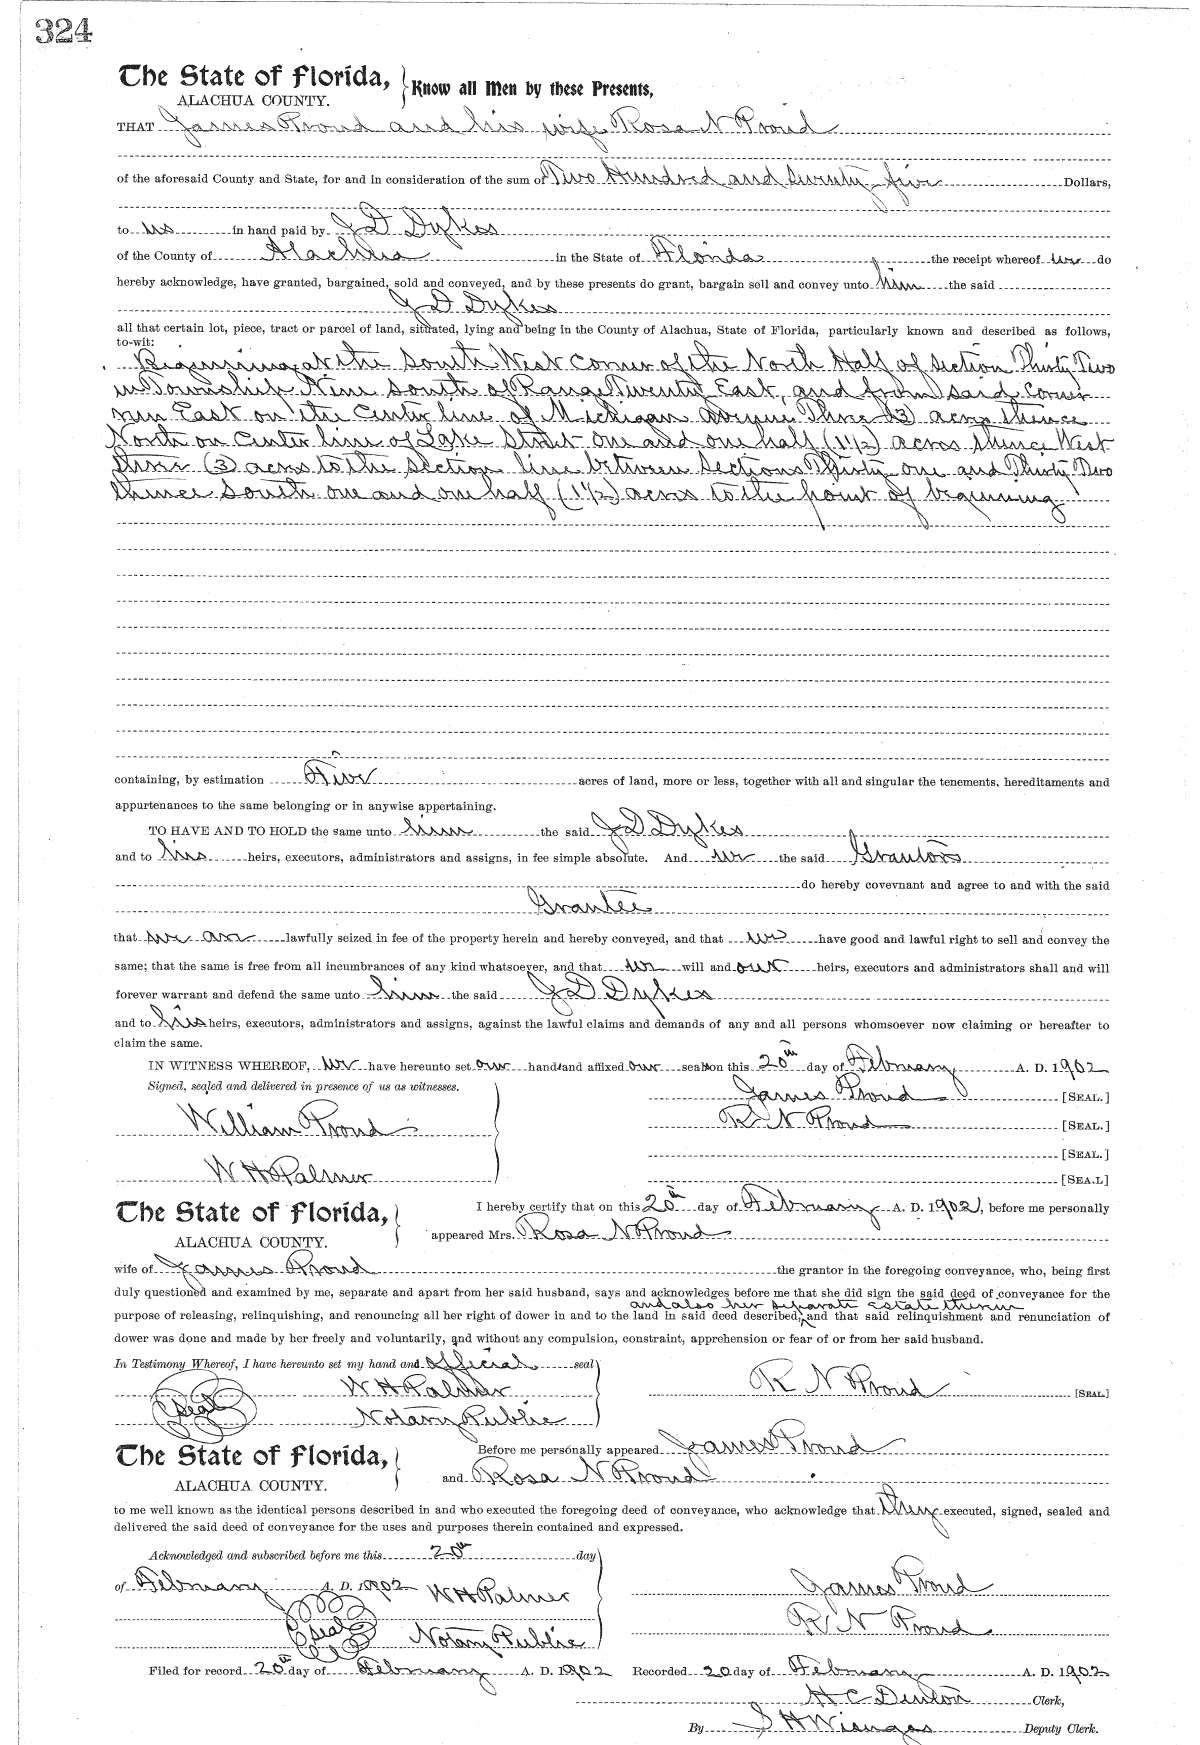 324
The State of Florida, Know all Men by these Presents,
ALACHUA COUNTY.
THAT James Proud and his wife Rosa N Proud
of the aforesaid County and State, for and in consideration of the sum of Two Hundred and Seventy five Dollars,
to us in hand paid by J D Dykes
of the County of Alachua in the State of Florida the receipt whereof we do
hereby acknowledge, have granted, bargained, sold and conveyed, and by these presents do grant, bargain sell and convey unto him the said
J D Dykes
all that certain lot, piece, tract or parcel of land, situated, lying and being in the County of Alachua, State of Florida, particularly known and described as follows,
to-wit:
Beginning at the South West Corner of the North Half of Section Thirty Two
in Township Nine South of Range Twenty East, and from said Corner
run East on the Center line of Michigan Avenue Three (3) acres thence
North on Center line of Lake Street one and one half (1½) acres thence West
three (3) acres to the Section line between Sections Thirty one and Thirty Two
thence South one and one half (1½) acres to the point of beginning
containing, by estimation Five acres of land, more or less, together with all and singular the tenements, hereditaments and
appurtenances to the same belonging or in anywise appertaining.
TO HAVE AND TO HOLD the same unto him the said J D Dykes
and to his heirs, executors, administrators and assigns, in fee simple absolute. And we the said Grantors
do hereby covevnant and agree to and with the said
Grantee
that we are lawfully seized in fee of the property herein and hereby conveyed, and that we have good and lawful right to sell and convey the
same; that the same is free from all incumbrances of any kind whatsoever, and that we will and our heirs, executors and administrators shall and will
forever warrant and defend the same unto him the said J D Dykes
and to his heirs, executors, administrators and assigns, against the lawful claims and demands of any and all persons whomsoever now claiming or hereafter to
claim the same.
IN WITNESS WHEREOF, we have hereunto set our hands and affixed our seals on this 20th day of February A. D. 1902
Signed, sealed and delivered in presence of us as witnesses.
James Proud [SEAL.]
William Proud R N Proud [SEAL.]
[SEAL.]
W H Palmer [SEA.L]
The State of Florida, I hereby certify that on this 20th day of February A. D. 1902, before me personally
ALACHUA COUNTY. appeared Mrs. Rosa N Proud
wife of James Proud the grantor in the foregoing conveyance, who, being first
duly questioned and examined by me, separate and apart from her said husband, says and acknowledges before me that she did sign the said deed of conveyance for the
and also her separate estate therein
purpose of releasing, relinquishing, and renouncing all her right of dower in and to the land in said deed described, and that said relinquishment and renunciation of
dower was done and made by her freely and voluntarily, and without any compulsion, constraint, apprehension or fear of or from her said husband.
In Testimony Whereof, I have hereunto set my hand and official seal
W H Palmer R N Proud [SEAL.]
Seal Notary Public
The State of Florida, Before me personally appeared James Proud
ALACHUA COUNTY. and Rosa N Proud
to me well known as the identical persons described in and who executed the foregoing deed of conveyance, who acknowledge that they executed, signed, sealed and
delivered the said deed of conveyance for the uses and purposes therein contained and expressed.
Acknowledged and subscribed before me this 20th day
of February A. D. 1902 W H Palmer James Proud
Seal Notary Public R N Proud
Filed for record 20th day of February A. D. 1902 Recorded 20 day of February A. D. 1902
H C Denton Clerk,
By S H Wienges Deputy Clerk.